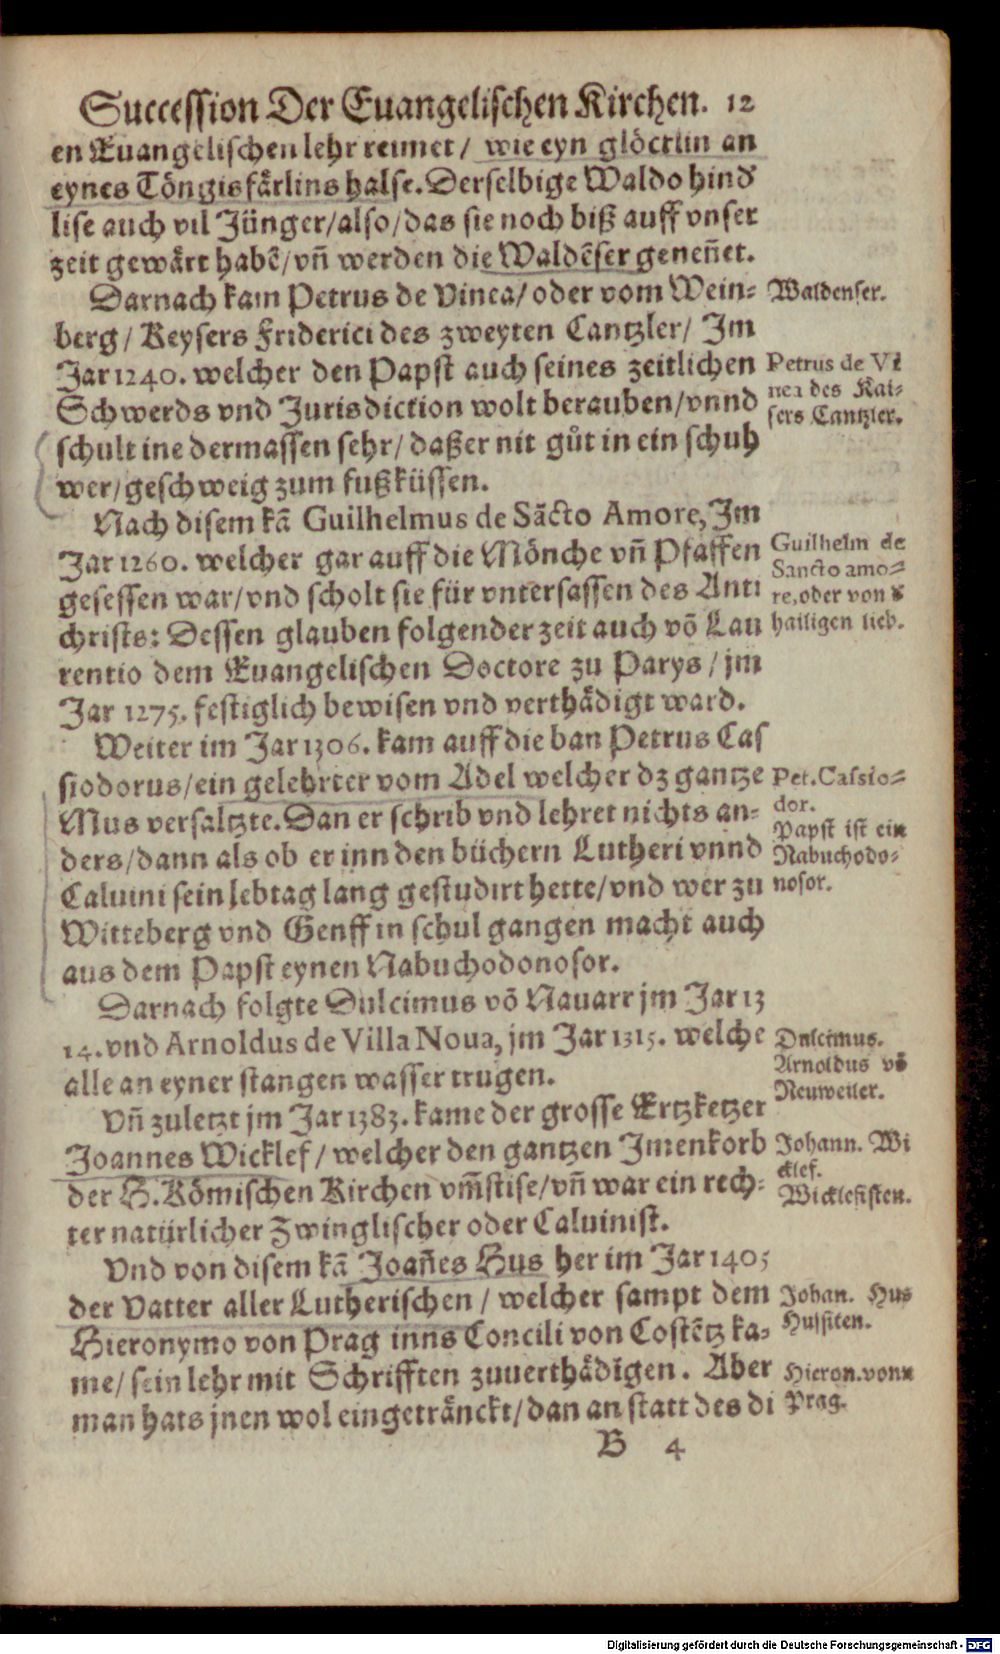 Succession Der Euangelischen Kirchen. 12
en Euangelischen lehr reimet / wie eyn glöcklin an
eynes Töngisfärlins halse. Derselbige Waldo hind
lise auch vil Jünger/also/das sie noch biß auff vnser
zeit gewärt habē/vñ werden die Waldēser geneñet.
Darnach kam Petrus de Vinea/oder vom Wein-
berg / Keysers Friderici des zweyten Cantzler / Im
Jar 1240. welcher den Papst auch seines zeitlichen
Schwerds vnd Jurisdiction wolt berauben/vnnd
schult ine dermassen sehr/ daßer nit gůt in ein schuh
wer/geschweig zum fußküssen.
Nach disem kā Guilhelmus de Sācto Amore, Im
Jar 1260. welcher gar auff die Mönche vñ Pfaffen
gesessen war/vnd scholt sie für vntersassen des Anti
christs: Dessen glauben folgender zeit auch vō Lau
rentio dem Euangelischen Doctore zu Parys / jm
Jar 1275. festiglich bewisen vnd verthädigt ward.
Weiter im Jar 1306. kam auff die ban Petrus Cas
siodorus/ein gelehrter vom Adel welcher dz gantze
Mus versaltzte. Dan er schrib vnd lehret nichts an-
ders/dann als ob er inn den büchern Lutheri vnnd
Caluini sein lebtag lang gestudirt hette/vnd wer zu
Witteberg vnd Genff in schul gangen macht auch
aus dem Papst eynen Nabuchodonosor.
Darnach folgte Dulcimus vō Nauarr jm Jar 13
14. vnd Arnoldus de Villa Noua, jm Jar 1315. welche
alle an eyner stangen wasser trugen.
Vñ zuletzt jm Jar 1383. kame der grosse Ertzketzer
Joannes Wicklef / welcher den gantzen Imenkorb
der H. Römischen Kirchen vm̄stise/vñ war ein rech-
ter natürlicher Zwinglischer oder Caluinist.
Vnd von disem kā Joañes Hus her im Jar 1405
der Vatter aller Lutherischen / welcher sampt dem
Hieronymo von Prag inns Concili von Costētz ka-
me/ sein lehr mit Schrifften zuuerthädigen. Aber
man hats jnen wol eingetränckt/dan an statt des di
B 4
Waldenser.
Petrus de Vi
nea des Kai-
sers Cantzler.
Guilhelm de
Sancto amo-
re, oder von d
hailigen lieb.
Pet. Cassio-
dor.
Papst ist ein
Nabuchodo-
nosor.
Dulcimus.
Arnoldus vō
Neuweiler.
Johann. Wi
cklef.
Wicklefisten.
Johan. Hus
Hussiten.
Hieron. vonn
Prag.
Digitalisierung gefördert durch die Deutsche Forschungsgemeinschaft - DFG